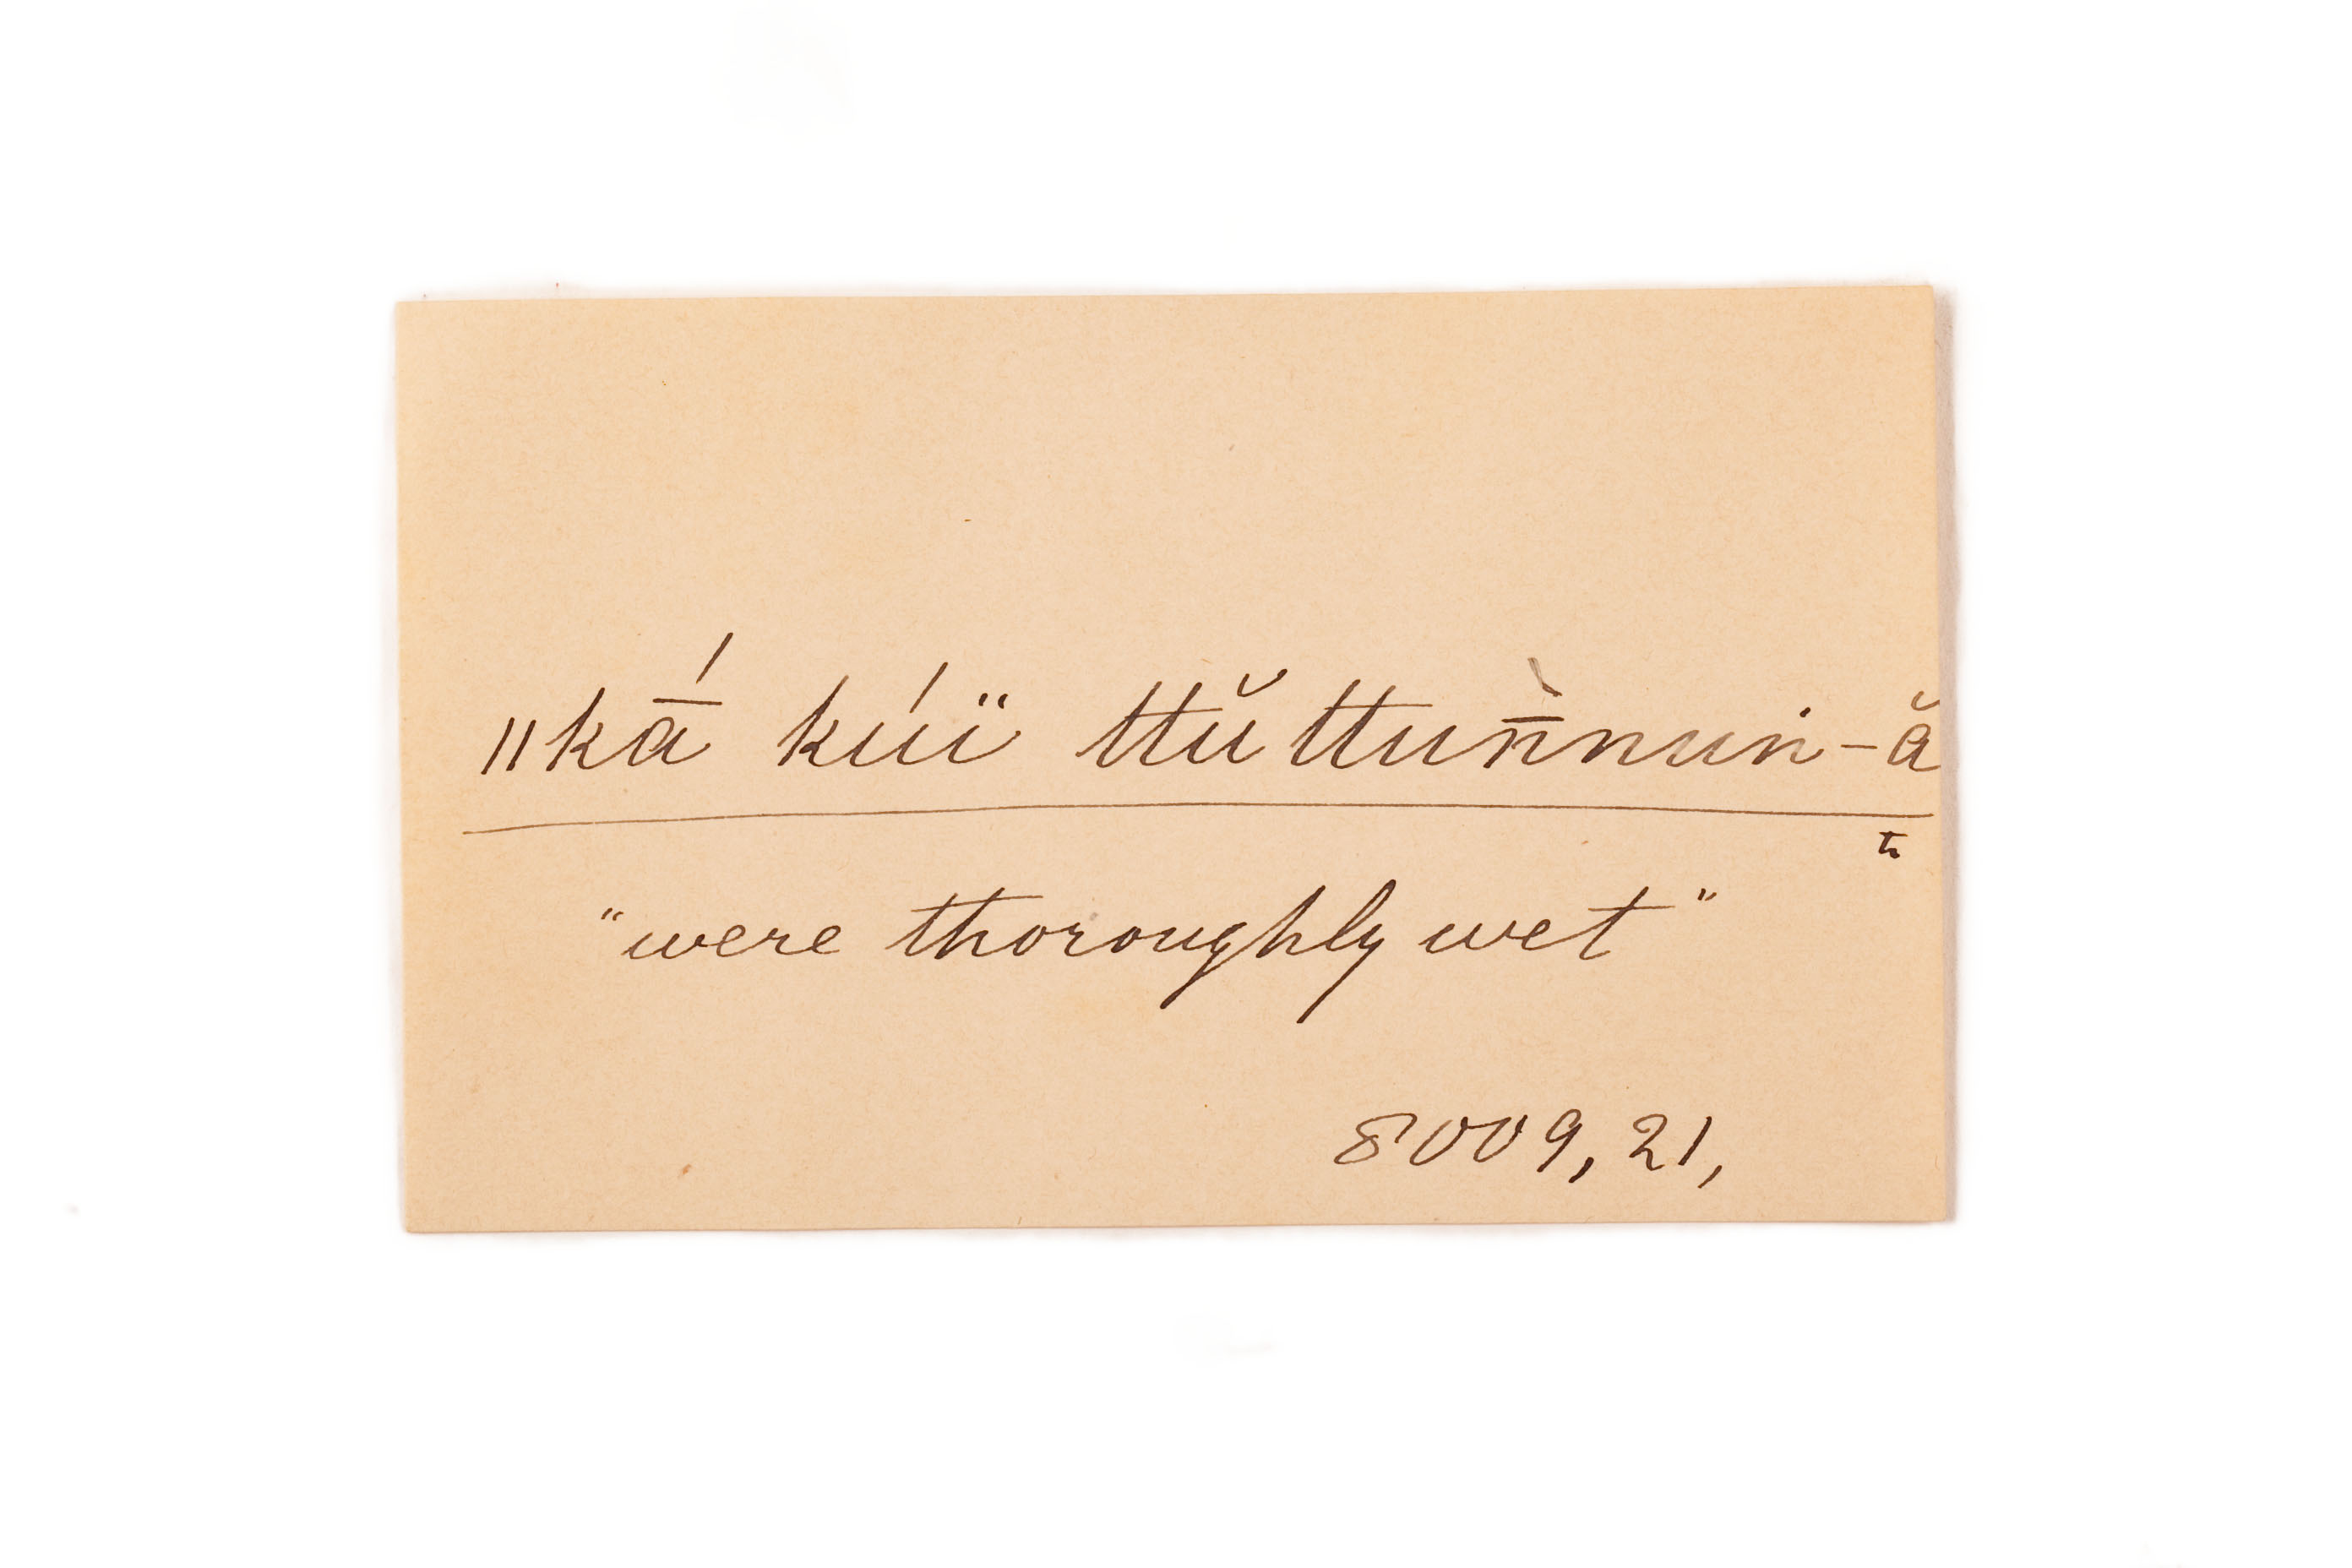 "kā́ kúï ttŭttuñ̀nuṅ-ă
ti
"were thoroughly wet"
8009, 21,